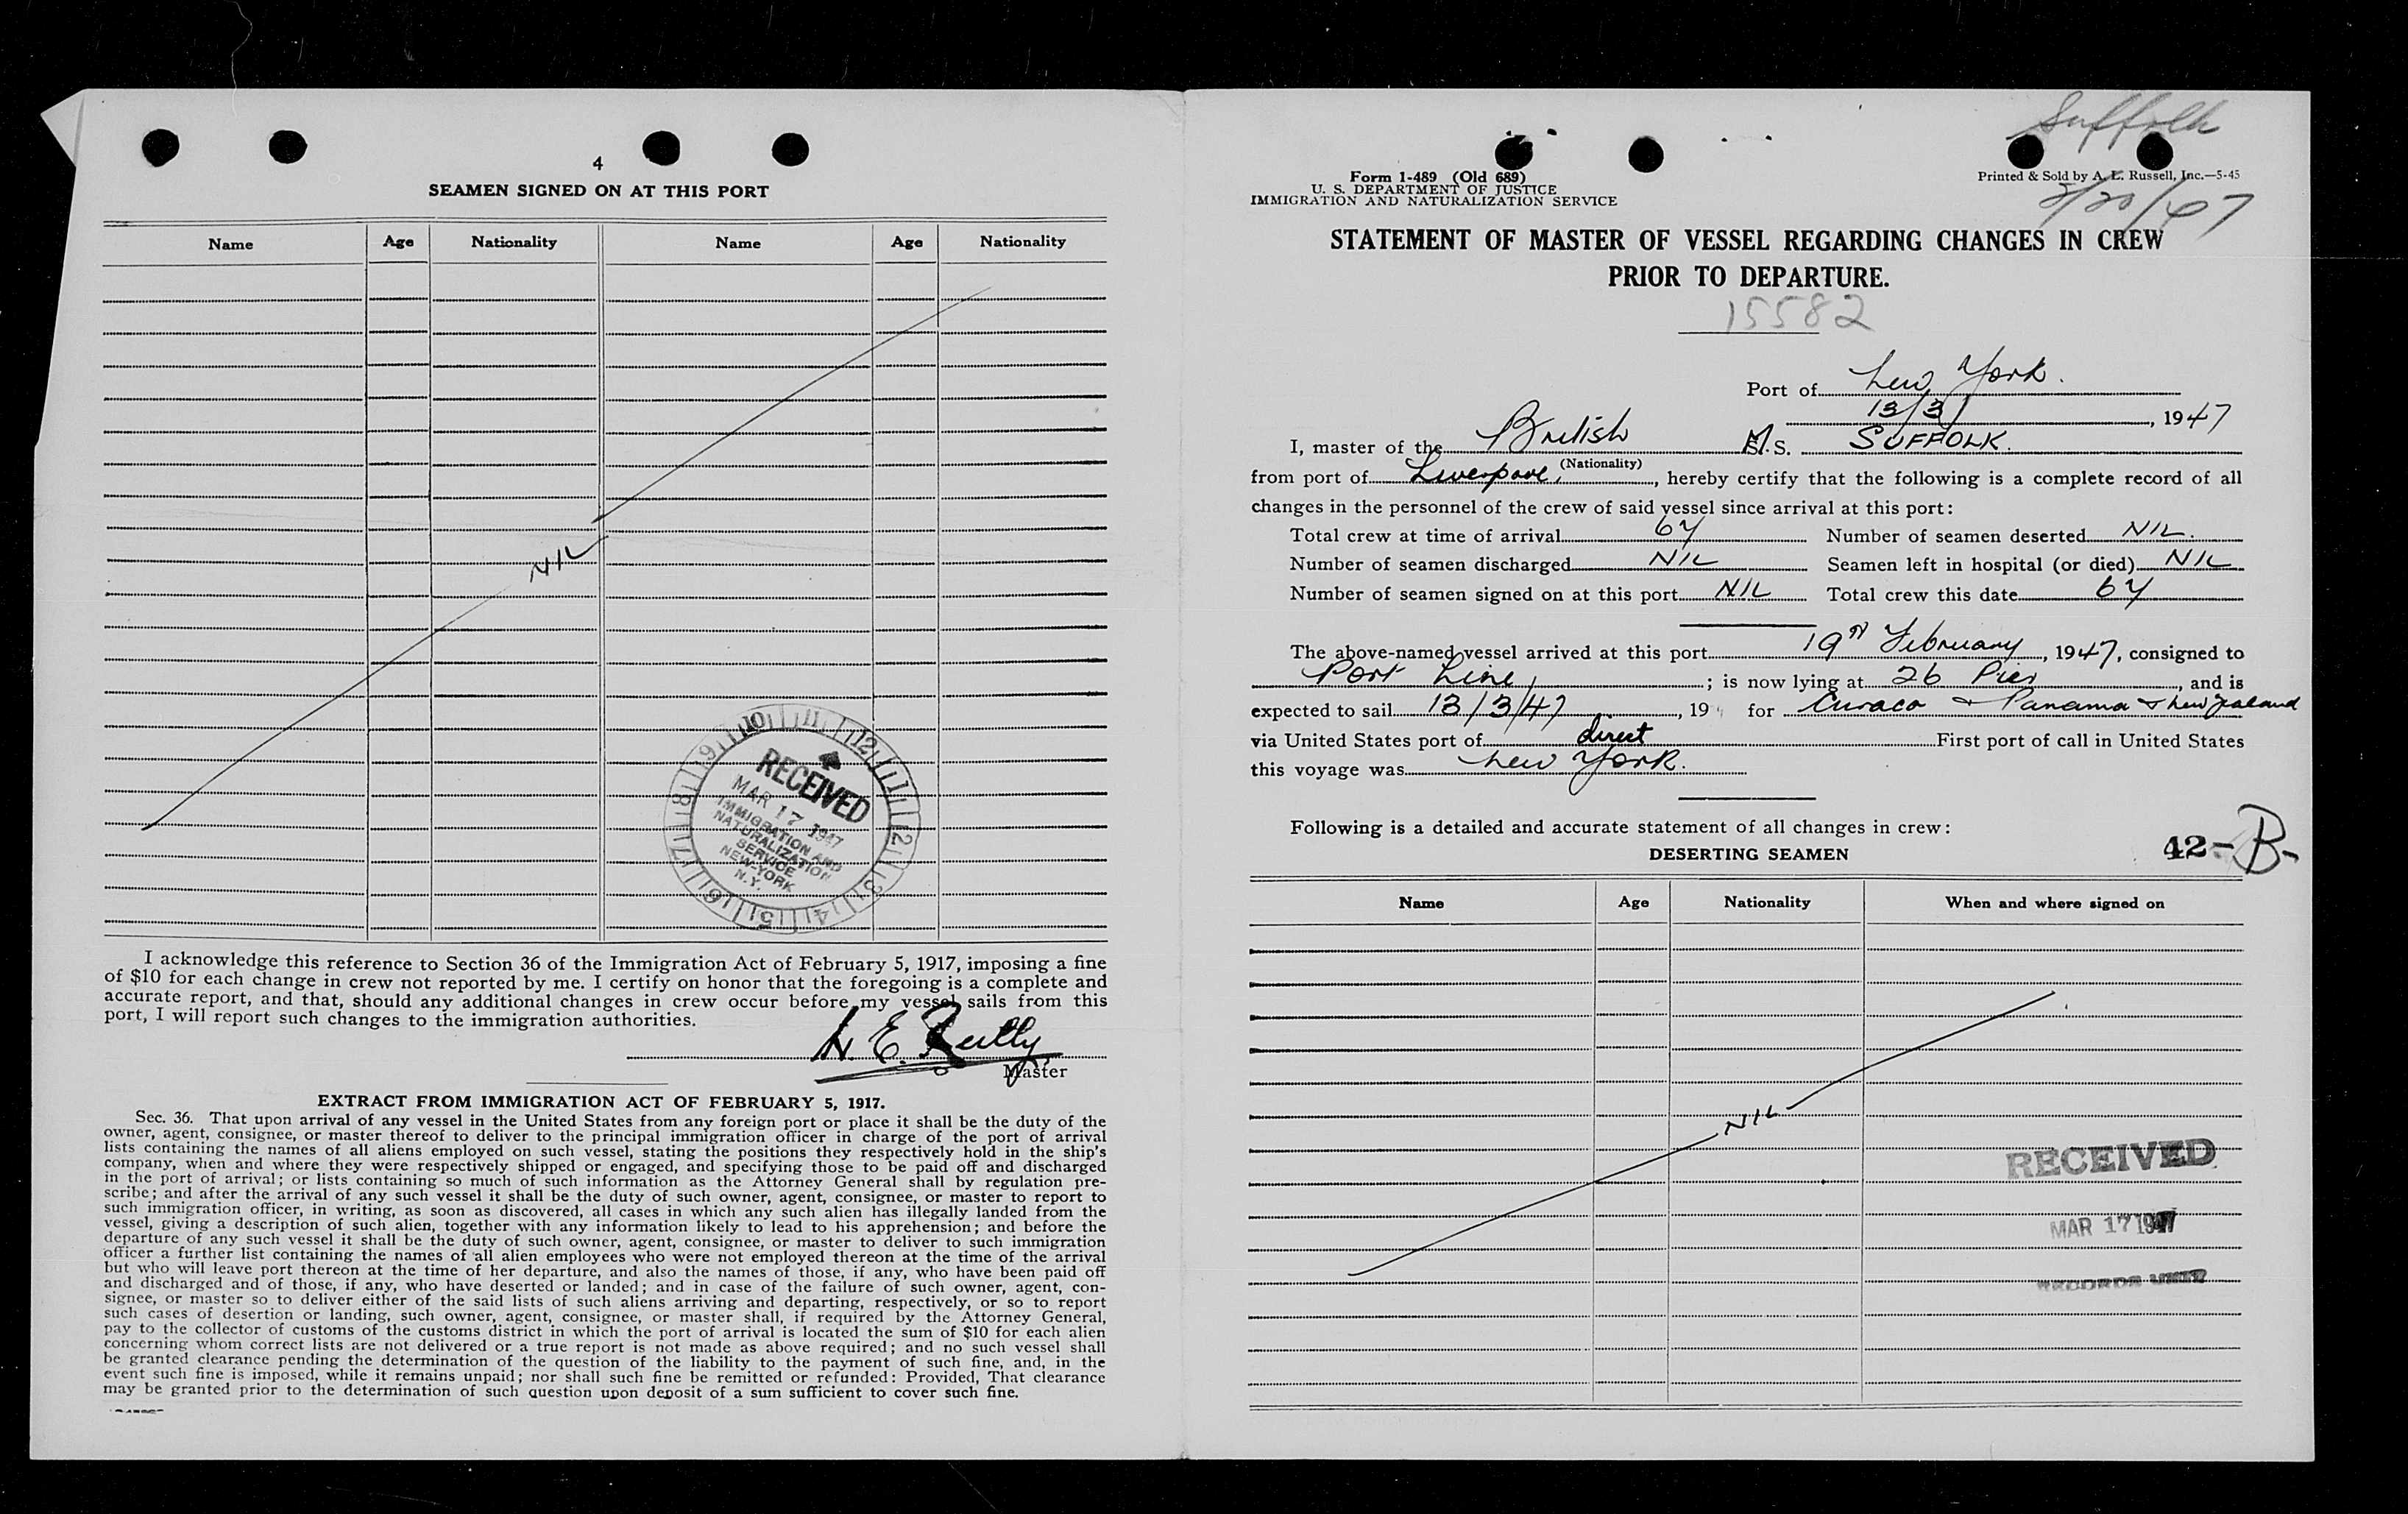 4
SEAMEN SIGNED ON AT THIS PORT
Name Age Nationality Name Age Nationality
NIL
RECEIVED
MAR 17 1947
IMMIGRATION AND
NATURALIZATION
SERVICE
NEW YORK
N.Y.
10 11 12 1 2 3 4 5 6 7 8 9
I acknowledge this reference to Section 36 of the Immigration Act of February 5, 1917, imposing a fine
of $10 for each change in crew not reported by me. I certify on honor that the foregoing is a complete and
accurate report, and that, should any additional changes in crew occur before my vessel sails from this
port, I will report such changes to the immigration authorities.
Master
EXTRACT FROM IMMIGRATION ACT OF FEBRUARY 5, 1917.
Sec. 36. That upon arrival of any vessel in the United States from any foreign port or place it shall be the duty of the
owner, agent, consignee, or master thereof to deliver to the principal immigration officer in charge of the port of arrival
lists containing the names of all aliens employed on such vessel, stating the positions they respectively hold in the ship's
company, when and where they were respectively shipped or engaged, and specifying those to be paid off and discharged
in the port of arrival; or lists containing so much of such information as the Attorney General shall by regulation pre-
scribe; and after the arrival of any such vessel it shall be the duty of such owner, agent, consignee, or master to report to
such immigration officer, in writing, as soon as discovered, all cases in which any such alien has illegally landed from the
vessel, giving a description of such alien, together with any information likely to lead to his apprehension; and before the
departure of any such vessel it shall be the duty of such owner, agent, consignee, or master to deliver to such immigration
officer a further list containing the names of all alien employees who were not employed thereon at the time of the arrival
but who will leave port thereon at the time of her departure, and also the names of those, if any, who have been paid off
and discharged and of those, if any, who have deserted or landed; and in case of the failure of such owner, agent, con-
signee, or master so to deliver either of the said lists of such aliens arriving and departing, respectively, or so to report
such cases of desertion or landing, such owner, agent, consignee, or master shall, if required by the Attorney General,
pay to the collector of customs of the customs district in which the port of arrival is located the sum of $10 for each alien
concerning whom correct lists are not delivered or a true report is not made as above required; and no such vessel shall
be granted clearance pending the determination of the question of the liability to the payment of such fine, and, in the
event such fine is imposed, while it remains unpaid; nor shall such fine be remitted or refunded: Provided, That clearance
may be granted prior to the determination of such question upon deposit of a sum sufficient to cover such fine.
Suffolk
Form 1-489 (Old 689)
U. S. DEPARTMENT OF JUSTICE
IMMIGRATION AND NATURALIZATION SERVICE
Printed & Sold by A. E. Russell, Inc.—5-45
2/20/47
STATEMENT OF MASTER OF VESSEL REGARDING CHANGES IN CREW
PRIOR TO DEPARTURE.
15582
Port of New York.
13/3/, 1947
I, master of the British M.S. SUFFOLK.
(Nationality)
from port of Liverpool, hereby certify that the following is a complete record of all
changes in the personnel of the crew of said vessel since arrival at this port:
Total crew at time of arrival 67 Number of seamen deserted NIL.
Number of seamen discharged NIL Seamen left in hospital (or died) NIL
Number of seamen signed on at this port NIL Total crew this date 67
The above-named vessel arrived at this port 19th February, 1947, consigned to
Port Line; is now lying at 26 Pier, and is
expected to sail 13/3/47, 19 for Curacao & Panama & New Zealand
via United States port of direct First port of call in United States
this voyage was New York.
Following is a detailed and accurate statement of all changes in crew:
DESERTING SEAMEN 42-B-
Name Age Nationality When and where signed on
NIL
RECEIVED
MAR 17 1947
RECORDS UNIT